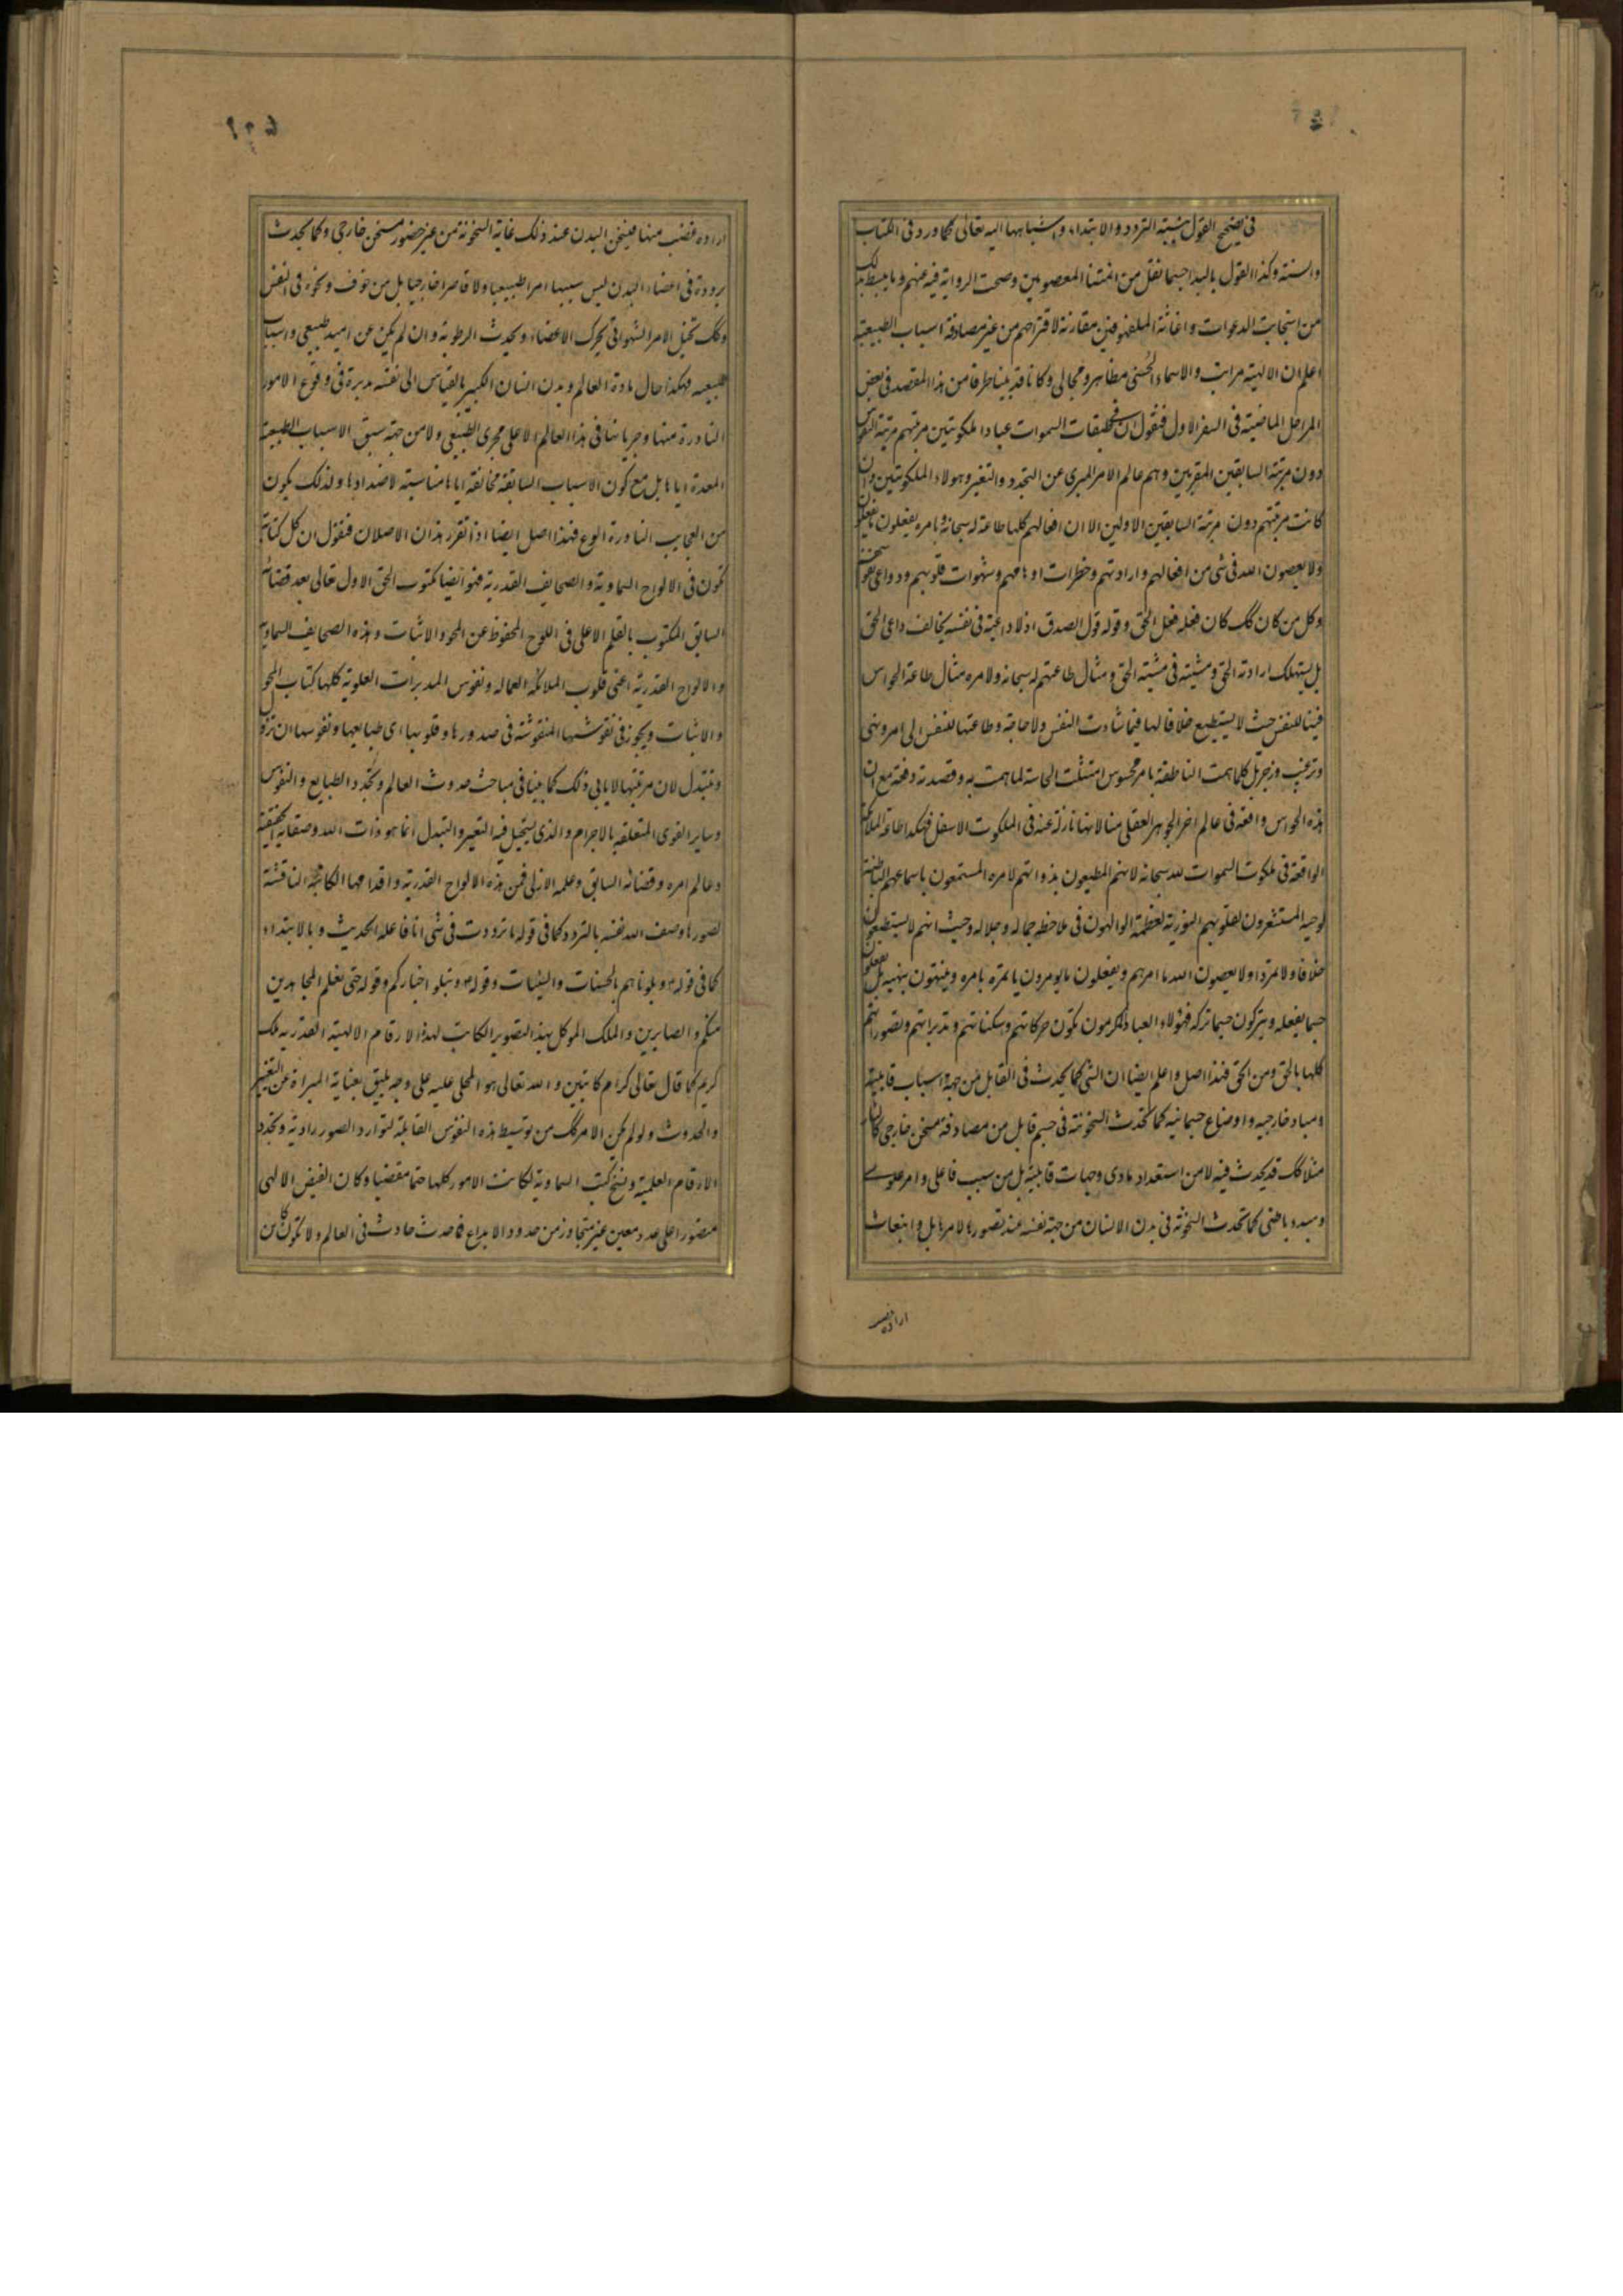 في تصحيح القول بنسبة التردد والابتداء واشباهها اليه تعالى كما ورد في الكتاب
والسنه وكذا القول بالبدا حسبما نقل من ائمتنا المعصومين وصحت الرواية فيه عنهم وما يبسط بذلك
من استجابت الدعوات واغاثة الملهوفين مقارنة لاقتراحهم من غير مصادفة اسباب الطبيعية
اعلم ان الالهية مراتب والاسماء الحسنى مظاهر ومجالى وكانا قد بينا طرفا من هذا المقصد في بعض
المراحل الماضية في السفر الاول فنقول ان في طبقات السموات عبادا ملكوتيين مرتبهم مرتبة النفوس
دون مرتبة السابقين المقربين وهم عالم الامر المبرى عن التجدد والتغير وهولاء الملكوتيين وان
كانت مرتبتهم دون مرتبة السابقين الاولين الا ان افعالهم كلها طاعة له سبحانه وبامره يفعلون ما يفعلون
ولا يعصون الله في شى من افعالهم وارادتهم وخطرات اوهامهم وشهوات قلوبهم ودواعى نفوسهم
وكل من كان كك كان فعله فعل الحق وقوله قول الصدق اذ لا داعية في نفسه يخالف داعى الحق
بل يستهلك ارادته الحق ومشيته في مشية الحق ومثال طاعتهم له سبحانه ولامره مثال طاعة الحواس
فينا للنفس حيث لا يستطيع خلافا لها فيما شادت النفس ولا حاجة وطاعتها للنفس الى امر ونهى
وترغيب وزجر بل كلما همت الناطقة بامر محسوس امتثلت الحاسة لما همت به وقصدته دفعة مع ان
هذه الحواس واقعة في عالم اخر الجوهر العقلى منا لانها نازلة عنه في الملكوت الاسفل فهكذا طاعة الملائكة
الواقعة في ملكوت السموات لله سبحانه لانهم المطيعون بذواتهم لامره المستمعون باسماعهم الباطنة
لوحيه المستشعرون بقلوبهم النورية لعظمة الوالهون في ملاحظه جماله وجلاله وحيث انهم لا يستطيعون
خلافا ولا تمردا ولا يعصون الله ما امرهم ويفعلون ما يومرون يا تمرة بامره وينتهون بنهيه بل يفعلون
حسبما يفعله ويتركون حسبما تركه فهؤلاء العباد المكرمون تكون حركاتهم وسكناتهم وتدبراتهم وتصوراتهم
كلها بالحق ومن الحق فهذا اصل واعلم ايضا ان الشى كما يحدث في القابل من جهة اسباب قابلية
ومباد خارجيه واوضاع جسمانيه كما تحدث السخونة في جسم قابل من مصادفة مسخن خارجى كالنار
مثلا كك قد يحدث فيه لا من استعداد مادى وجهات قابلية بل من سبب فاعلى وامر علوى
ومبدء باطنى كما تحدث السخونة في بدن الانسان من جهة نفسه عند تصورها لامر هايل وانبعاث
اراده غضب
اراده غضب منها فيسخن البدن عند ذلك غاية السخونة من غير حضور مسخن خارجى وكما يحدث
برودة في اعضاء البدن ليس سببها امرا طبيعيا ولا قاصرا خارجيا بل من خوف ونحوه في النفس
وكك تخيل الامر الشهوانى تحرك الاعضاء ويحدث الرطوبة وان لم يكن عن امتيد طبيعى واسباب
طبيعيه فهكذا حال مادة العالم وبدن انسان الكبير بالقياس الى نفسه مدبرة في وقوع الامور
النادرة منها وجريانها في هذا العالم لا على مجرى الطبيعى ولا من جهة سبق الاسباب الطبيعية
المعدة اياها بل مع كون الاسباب السابقة مخالفة اياها مناسبة لاضدادها ولذلك يكون
من العجايب النادرة الوقوع فهذا اصل ايضا اذا تقرر هذان الاصلان فنقول ان كل كتابة
تكون في الالواح السماوية والصحايف القدرية فهو ايضا مكتوب الحق الاول تعالى بعد قضائه
السابق المكتوب بالقلم الاعلى في اللوح المحفوظ عن المحو والاثبات وهذه الصحايف السماوية
والالواح القدرية اعنى قلوب الملائكة العماله ونفوس المدبرات العلوية كلها كتاب المحو
والاثبات ويجوز في نقوشها المنقوشة في صدورها وقلوبها اى طبايعها ونفوسها ان تزول
وتتبدل لان مرتبتها لا يابى ذلك كما بينا في مباحث حدوث العالم وتجدد الطبايع والنفوس
وساير القوى المتعلقه بالاجرام والذى يستحيل فيه التغير والتبدل انما هو ذات الله وصفاته الحقيقية
وعالم امره وقضائه السابق وعلمه الازلى فمن هذه الالواح القدرية واقدامها الكاتبة الناقشة
لصورها وصف الله نفسه بالتردد كما في قوله ما ترددت في شى انا فاعله الحديث وبالابتداء
كما في قوله وبلوناهم بالحسنات والسيئات وقوله ونبلو اخباركم وقوله حتى نعلم المجاهدين
منكم والصابرين والملك الموكل بهذا التصوير الكاتب لهذه الارقام الالهية القدريه ملك
كريم كما قال تعالى كراما كاتبين والله تعالى هو المحلى عليه على وجه يليق بعناية المبراة عن التغير
والحدوث ولو لم يكن الامر كك من توسيط هذه النفوس القابلة لتوارد الصور رادية وتجدد
الارقام العلمية ونسخ كتب السماوية لكانت الامور كلها حتما مقضيا وكان الفيض الالهى
مقصورا على عدد معين غير متجاوز من حدود الابداع فما حدث حادث في العالم ولا تكون كائن